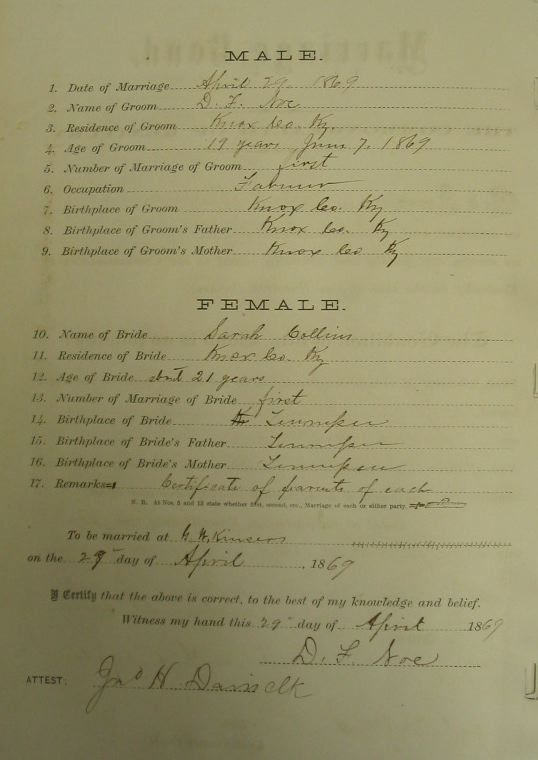 MALE.
1. Date of Marriage April 29 1869
2. Name of Groom D. F. Noe
3. Residence of Groom Knox Co. Ky.
4. Age of Groom 19 years June 7, 1869
5. Number of Marriage of Groom first
6. Occupation Farmer
7. Birthplace of Groom Knox Co. Ky
8. Birthplace of Groom's Father Knox Co. Ky
9. Birthplace of Groom's Mother Knox Co Ky
FEMALE.
10. Name of Bride Sarah Collins
11. Residence of Bride Knox Co. Ky
12. Age of Bride abut 21 years
13. Number of Marriage of Bride first
14. Birthplace of Bride Tennessee
15. Birthplace of Bride's Father Tennessee
16. Birthplace of Bride's Mother Tennessee
17. Remarks Certificate of parents of each
N. B. At Nos. 5 and 13 state whether first, second, etc., Marriage of each or either party.
To be married at
on the 29 day of April, 1869
I Certify that the above is correct, to the best of my knowledge and belief.
Witness my hand this 29 day of April 1869
D. F. Noe
ATTEST: Jno H